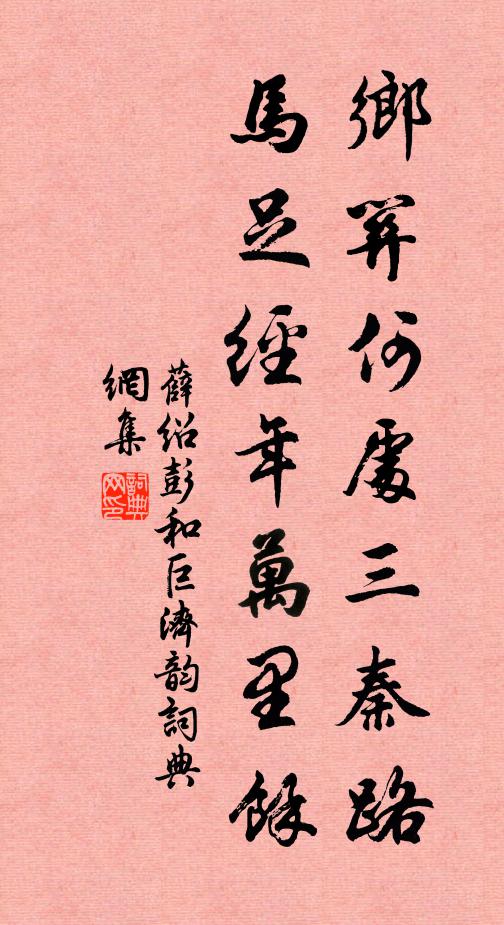 鄉關何處三秦路
馬足經年萬里餘
薛紹彭和巨濟韵詞典
網集
詞典
网印